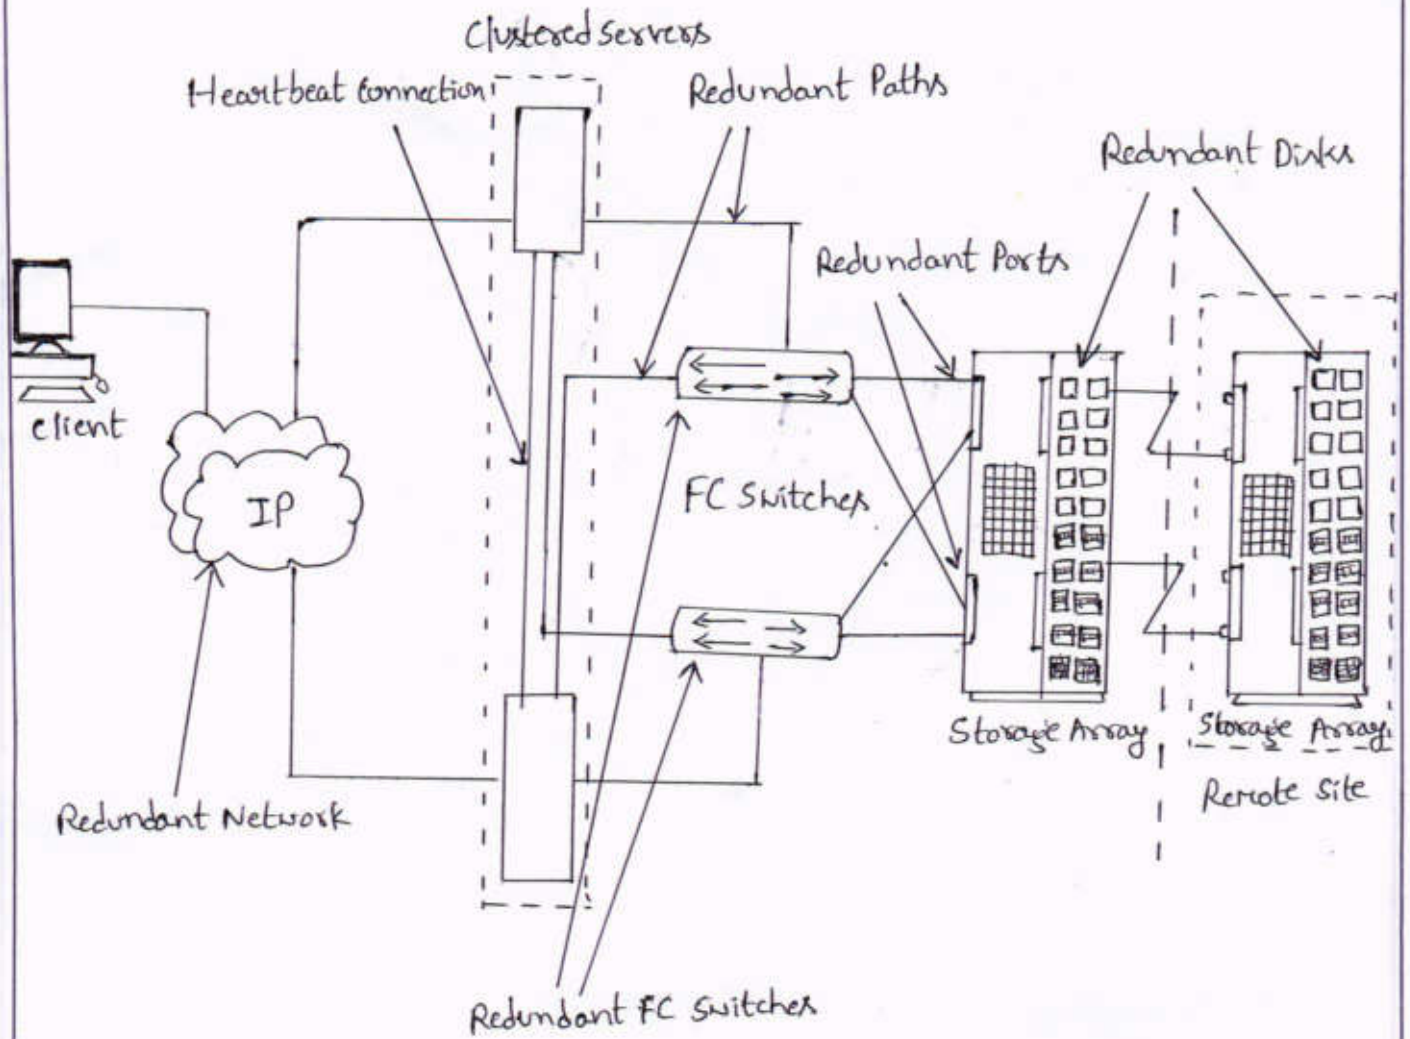 Clustered Servers
Heartbeat Connection
Redundant Paths
Redundant Disks
Redundant Ports
client
IP
FC Switches
Storage Array
Storage Array
Remote Site
Redundant Network
Redundant FC Switches